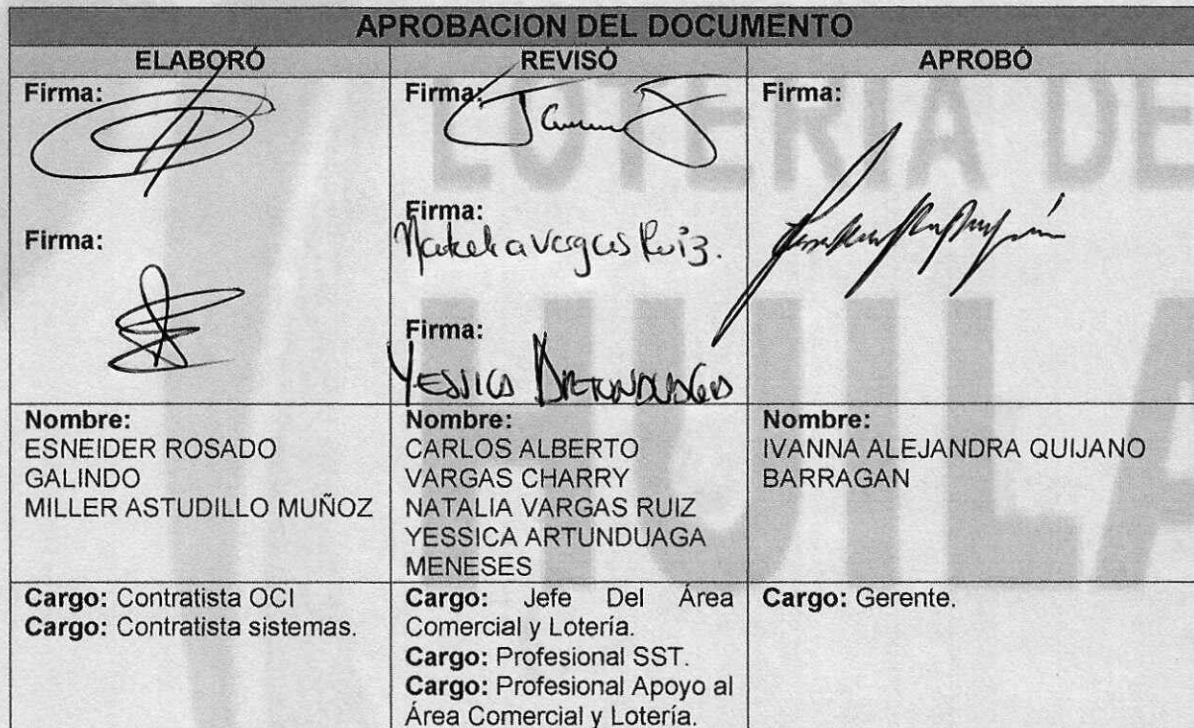 APROBACION DEL DOCUMENTO
ELABORÓ
REVISÓ
APROBÓ
Firma:
Firma:
Firma:
Firma:
Firma:
Natalia Vargas Ruiz.
Firma:
YESSICA ARTUNDUAGA
Nombre:
ESNEIDER ROSADO
GALINDO
MILLER ASTUDILLO MUÑOZ
Nombre:
CARLOS ALBERTO
VARGAS CHARRY
NATALIA VARGAS RUIZ
YESSICA ARTUNDUAGA
MENESES
Nombre:
IVANNA ALEJANDRA QUIJANO
BARRAGAN
Cargo: Contratista OCI
Cargo: Contratista sistemas.
Cargo: Jefe Del Área
Comercial y Lotería.
Cargo: Profesional SST.
Cargo: Profesional Apoyo al
Área Comercial y Lotería.
Cargo: Gerente.
LOTERIA DE
HUILA